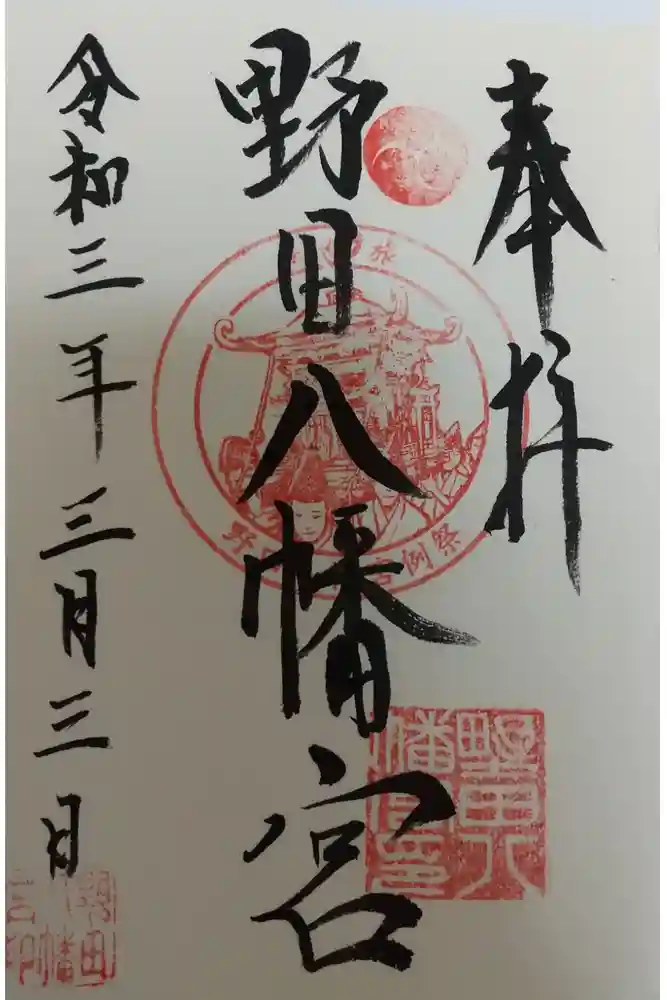 奉拝
野田八幡宮
令和三年三月三日
野田八幡宮印